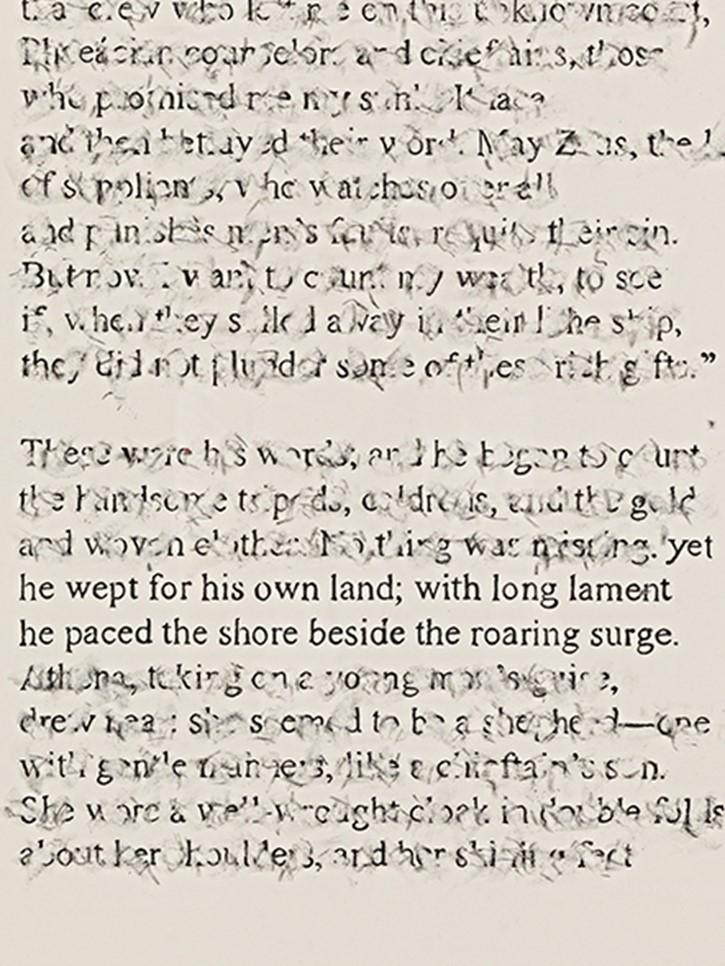 who me on this unknown coast,
Phaeacian counselors and chieftains, those
who promised me my
and then betrayed their word. May Zeus, the
of suppliants, who watches over all
and punishes men's faults, requite their sin.
But now I want to count my wealth, to see
if, when they sailed away in their the ship,
they did not plunder some of these rich gifts.”
These were his words; and he began to count
the handsome tripods, caldrons, and the gold
and woven clothes. Nothing was missing. yet
he wept for his own land; with long lament
he paced the shore beside the roaring surge.
Athena, taking on a young man's guise,
drew near: she seemed to be a shepherd—one
with gentle manners, like a chieftain's son.
She wore a well-wrought cloak in double folds
about her shoulders, and her feet